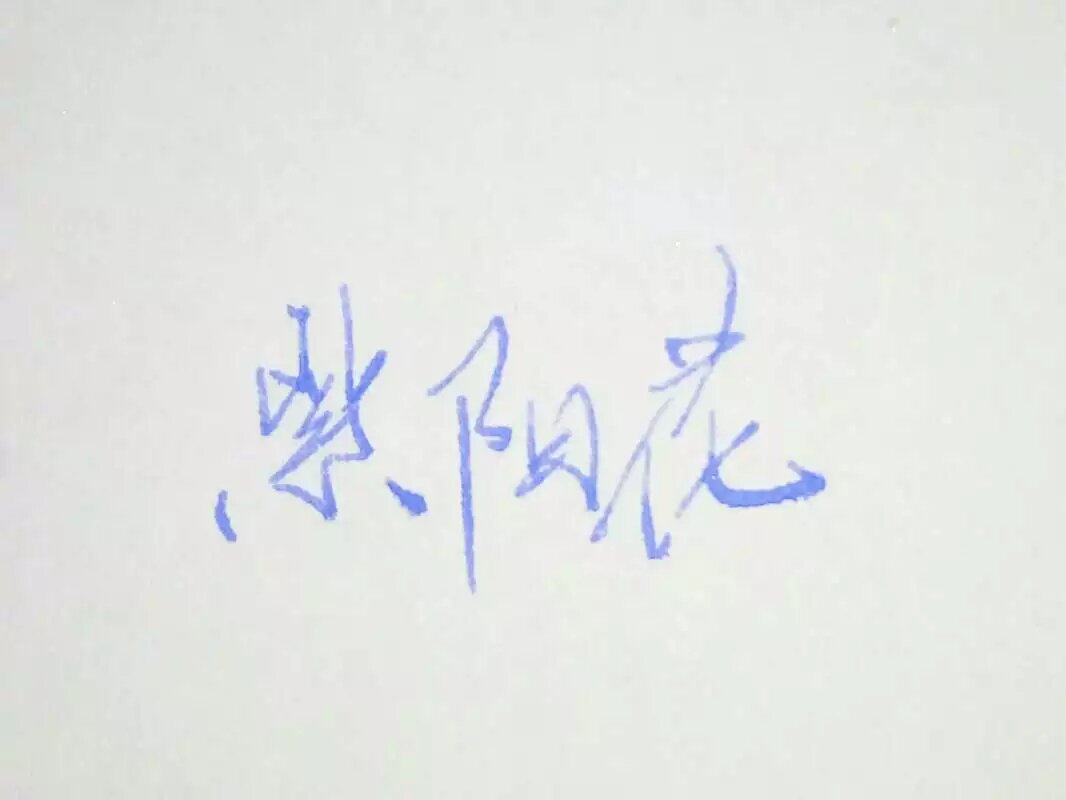 紫阳花